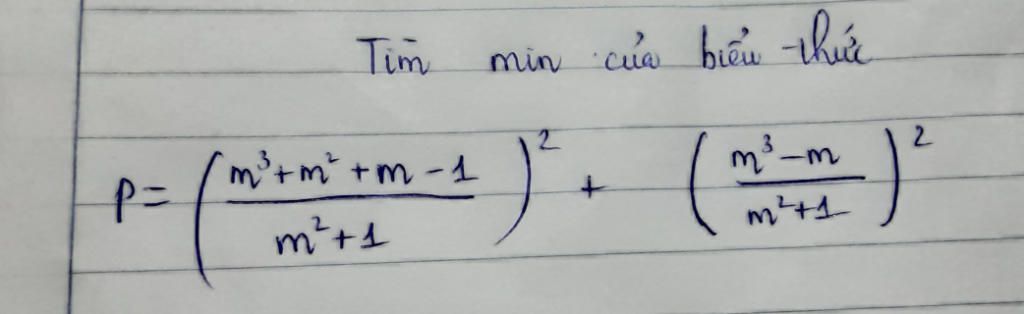 Tìm min của biểu thức
P = ( (m³ + m² + m - 1) / (m² + 1) )² + ( (m³ - m) / (m² + 1) )²